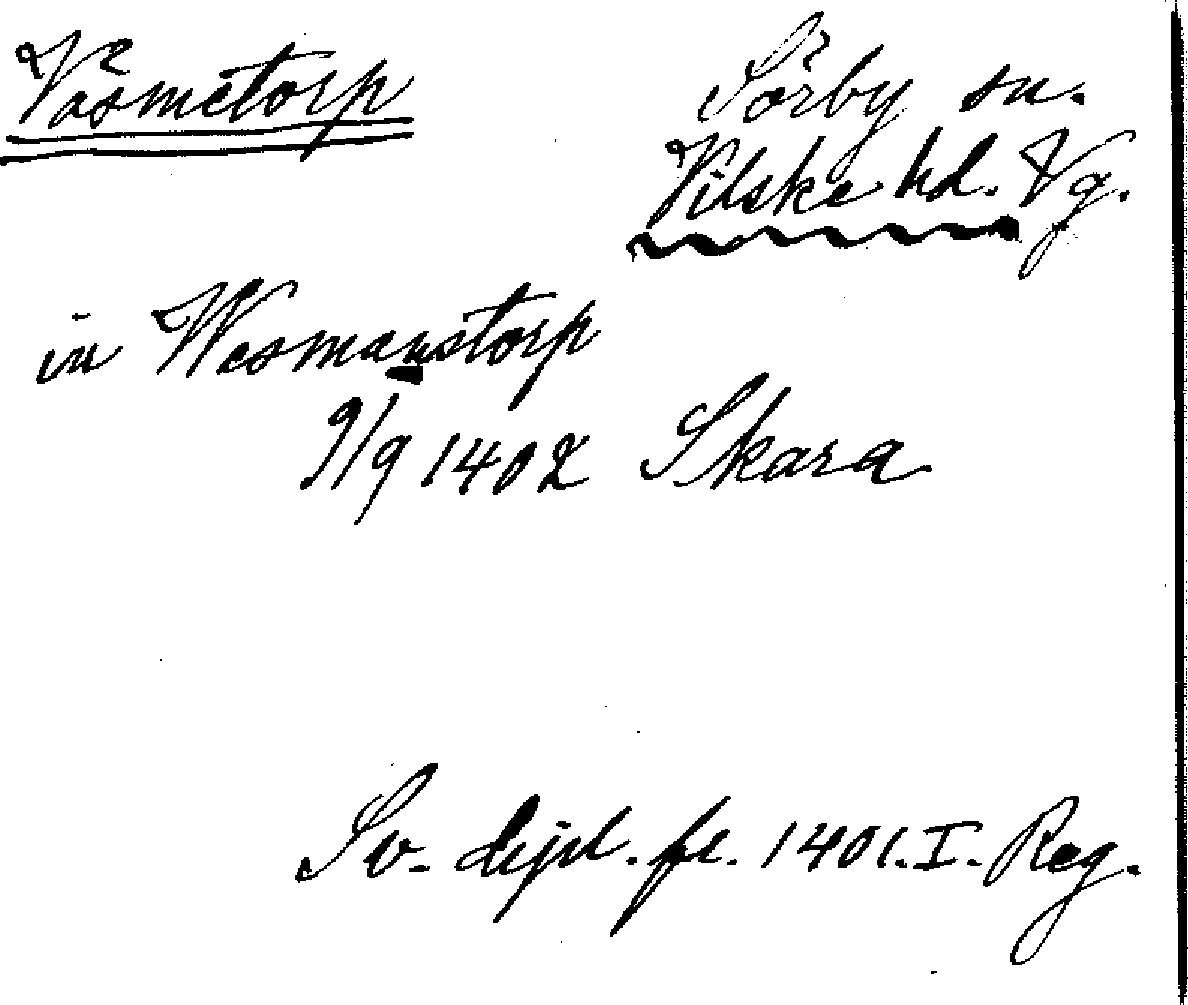 Väsmetorp
Sörby sn.
Vilske hd. Vg.
in Wesmanstorp
9/9 1402 Skara
Sv. dipl. fr. 1401. I. Reg.